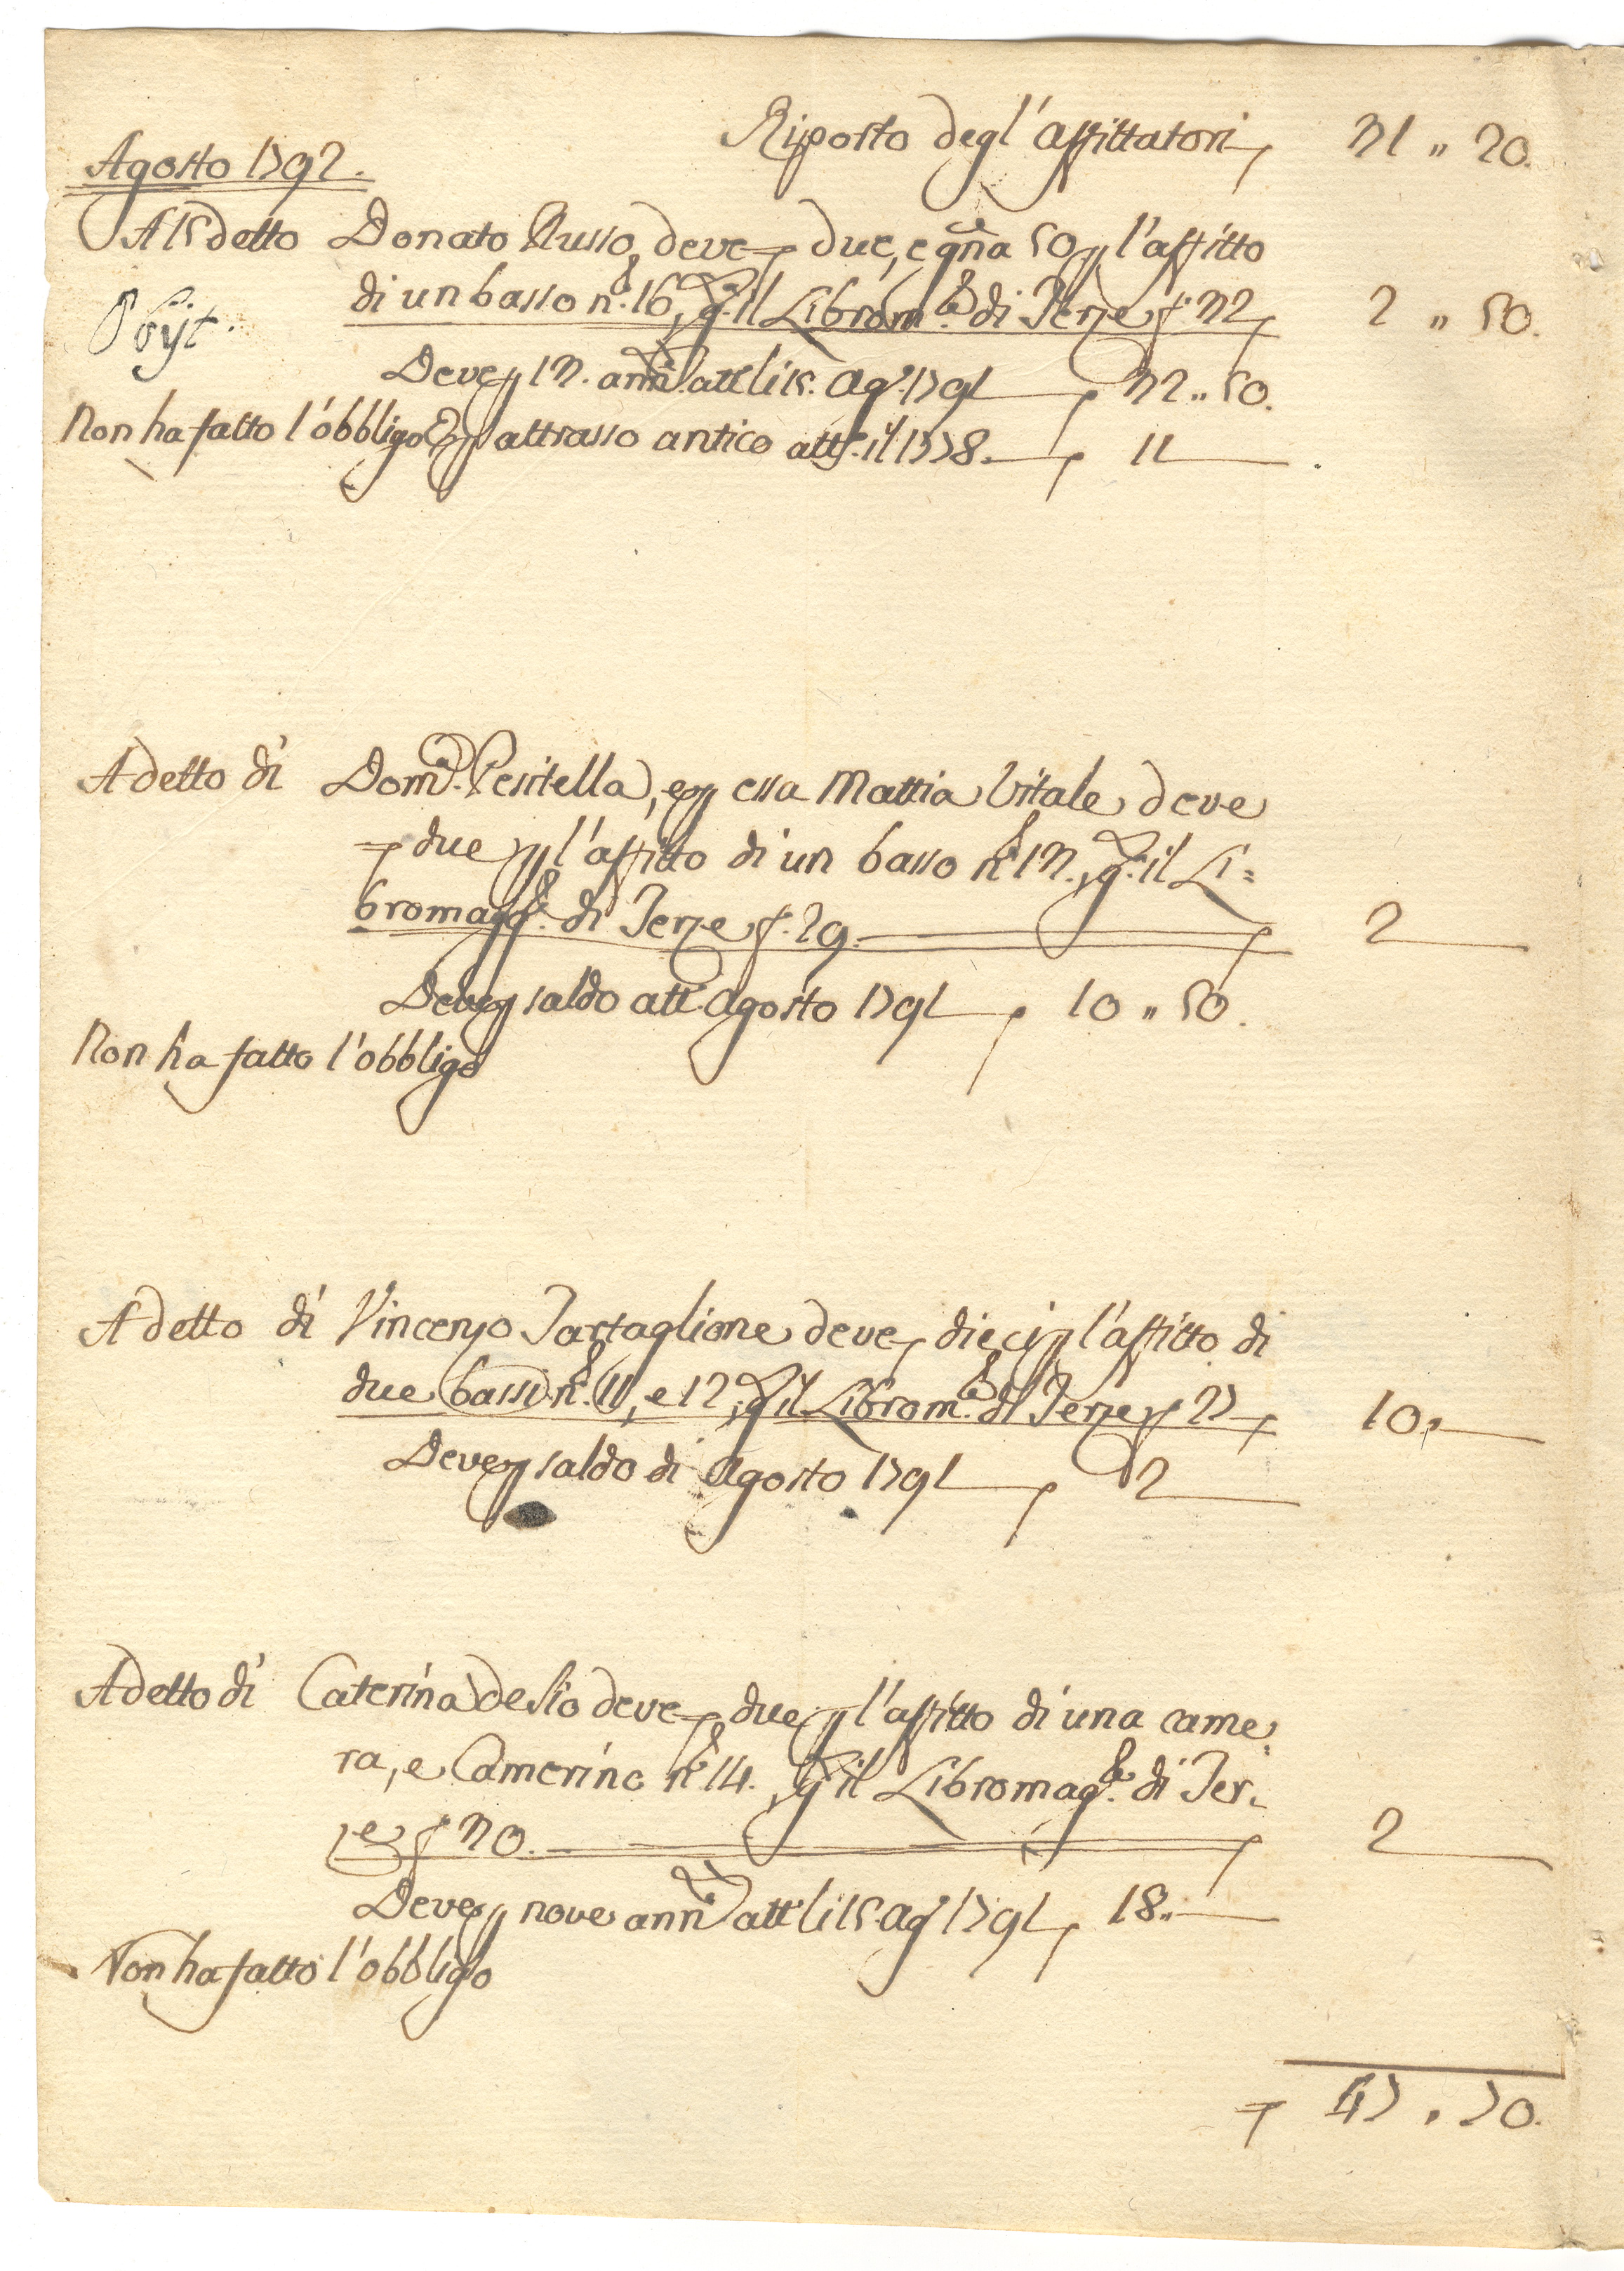 Riporto degl'affittatori 31 " 20.
Agosto 1792.
A 15 detto Donato Russo deve due, e gña 50 p l'affitto
di un basso nº. 16, gª. il Librom.e di Terze f. 32 2 " 50.
Deve p 13. anñi att.e li 15. Ag.º 1791 32 " 50.
Non ha fatto l'obbligo E p attrasso antico att.e il 1778. 11
A detto di Dom.ª Pesitella, e p essa Mattia Vitale deve
due p l'affitto di un basso nº 13., gª. il Li=
bromagg.e di Terze f. 29. 2
Deve p saldo att.e Agosto 1791 10 " 50.
Non ha fatto l'obbligo
A detto di Vincenzo Tartaglione deve dieci p l'affitto di
due bassi nº. 11, e 12, gª il Librom.e di Terze f. 27 10.
Deve p saldo di Agosto 1791 2
A detto di Caterina de Sio deve due p l'affitto di una came=
ra, e Camerino nº 14., gª il Libromag.e di Ter=
ze f. 30. 2
Deve p nove anñi att.e li 15. Ag.º 1791 18.
Non ha fatto l'obbligo
47 . 70.